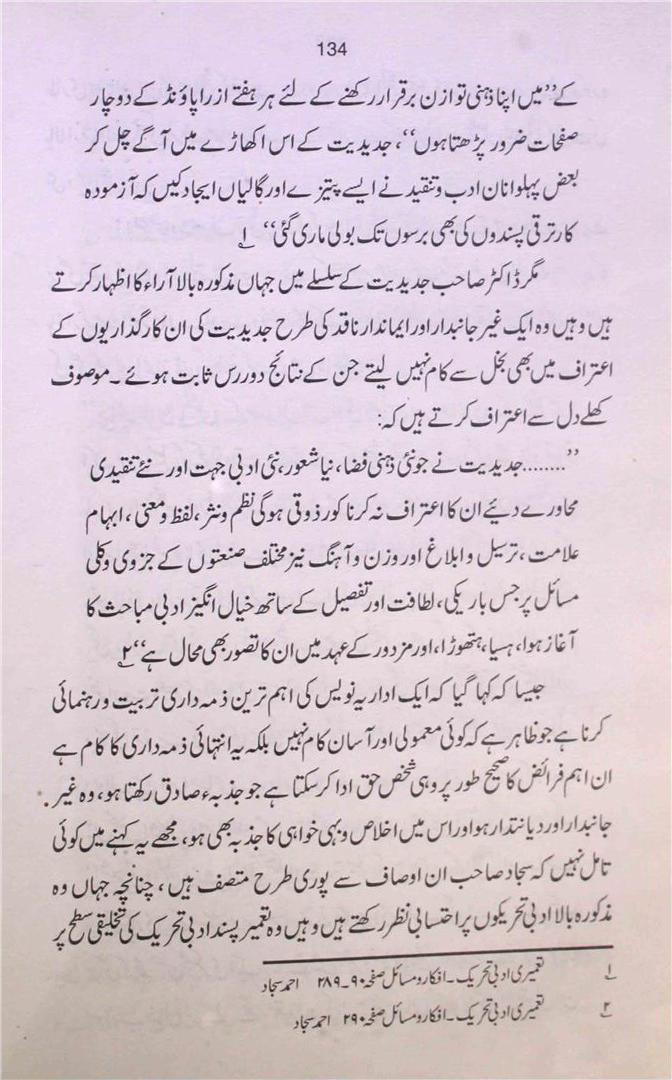 134
کے ’’میں اپنا ذہنی توازن برقرار رکھنے کے لئے ہر ہفتے ازرا پاؤنڈ کے دو چار
صفحات ضرور پڑھتا ہوں‘‘، جدیدیت کے اس اکھاڑے میں آگے چل کر
بعض پہلوانان ادب و تنقید نے ایسے پتیزے اور گالیاں ایجاد کیں کہ آزمودہ
کار ترقی پسندوں کی بھی برسوں تک بولی ماری گئی‘‘ ۱
مگر ڈاکٹر صاحب جدیدیت کے سلسلے میں جہاں مذکورہ بالا آراء کا اظہار کرتے
ہیں وہیں وہ ایک غیر جانبدار اور ایماندار ناقد کی طرح جدیدیت کی ان کارگذاریوں کے
اعتراف میں بھی بخل سے کام نہیں لیتے جن کے نتائج دور رس ثابت ہوئے ۔ موصوف
کھلے دل سے اعتراف کرتے ہیں کہ:
’’........جدیدیت نے جو نئی ذہنی فضا، نیا شعور، نئی ادبی جہت اور نئے تنقیدی
محاورے دیئے ان کا اعتراف نہ کرنا کور ذوقی ہوگی نظم و نثر، لفظ و معنی، ابہام
علامت، ترسیل و ابلاغ اور وزن و آہنگ نیز مختلف صنعتوں کے جزوی و کلی
مسائل پر جس باریکی، لطافت اور تفصیل کے ساتھ خیال انگیز ادبی مباحث کا
آغاز ہوا، ہسیا، ہتھوڑا، اور مزدور کے عہد میں ان کا تصور بھی محال ہے‘‘ ۲
جیسا کہ کہا گیا کہ ایک اداریہ نویس کی اہم ترین ذمہ داری تربیت و رہنمائی
کرنا ہے جو ظاہر ہے کہ کوئی معمولی اور آسان کام نہیں بلکہ یہ انتہائی ذمہ داری کا کام ہے
ان اہم فرائض کا صحیح طور پر وہی شخص حق ادا کر سکتا ہے جو جذبہء صادق رکھتا ہو، وہ غیر
جانبدار اور دیانتدار ہو اور اس میں اخلاص و بہی خواہی کا جذبہ بھی ہو، مجھے یہ کہنے میں کوئی
تامل نہیں کہ سجاد صاحب ان اوصاف سے پوری طرح متصف ہیں، چنانچہ جہاں وہ
مذکورہ بالا ادبی تحریکوں پر احتسابی نظر رکھتے ہیں وہیں وہ تعمیر پسند ادبی تحریک کی تخلیقی سطح پر
۱ تعمیری ادبی تحریک ۔ افکار و مسائل صفحہ ۹۰۔۲۸۹ احمد سجاد
۲ تعمیری ادبی تحریک ۔ افکار و مسائل صفحہ ۲۹۰ احمد سجاد